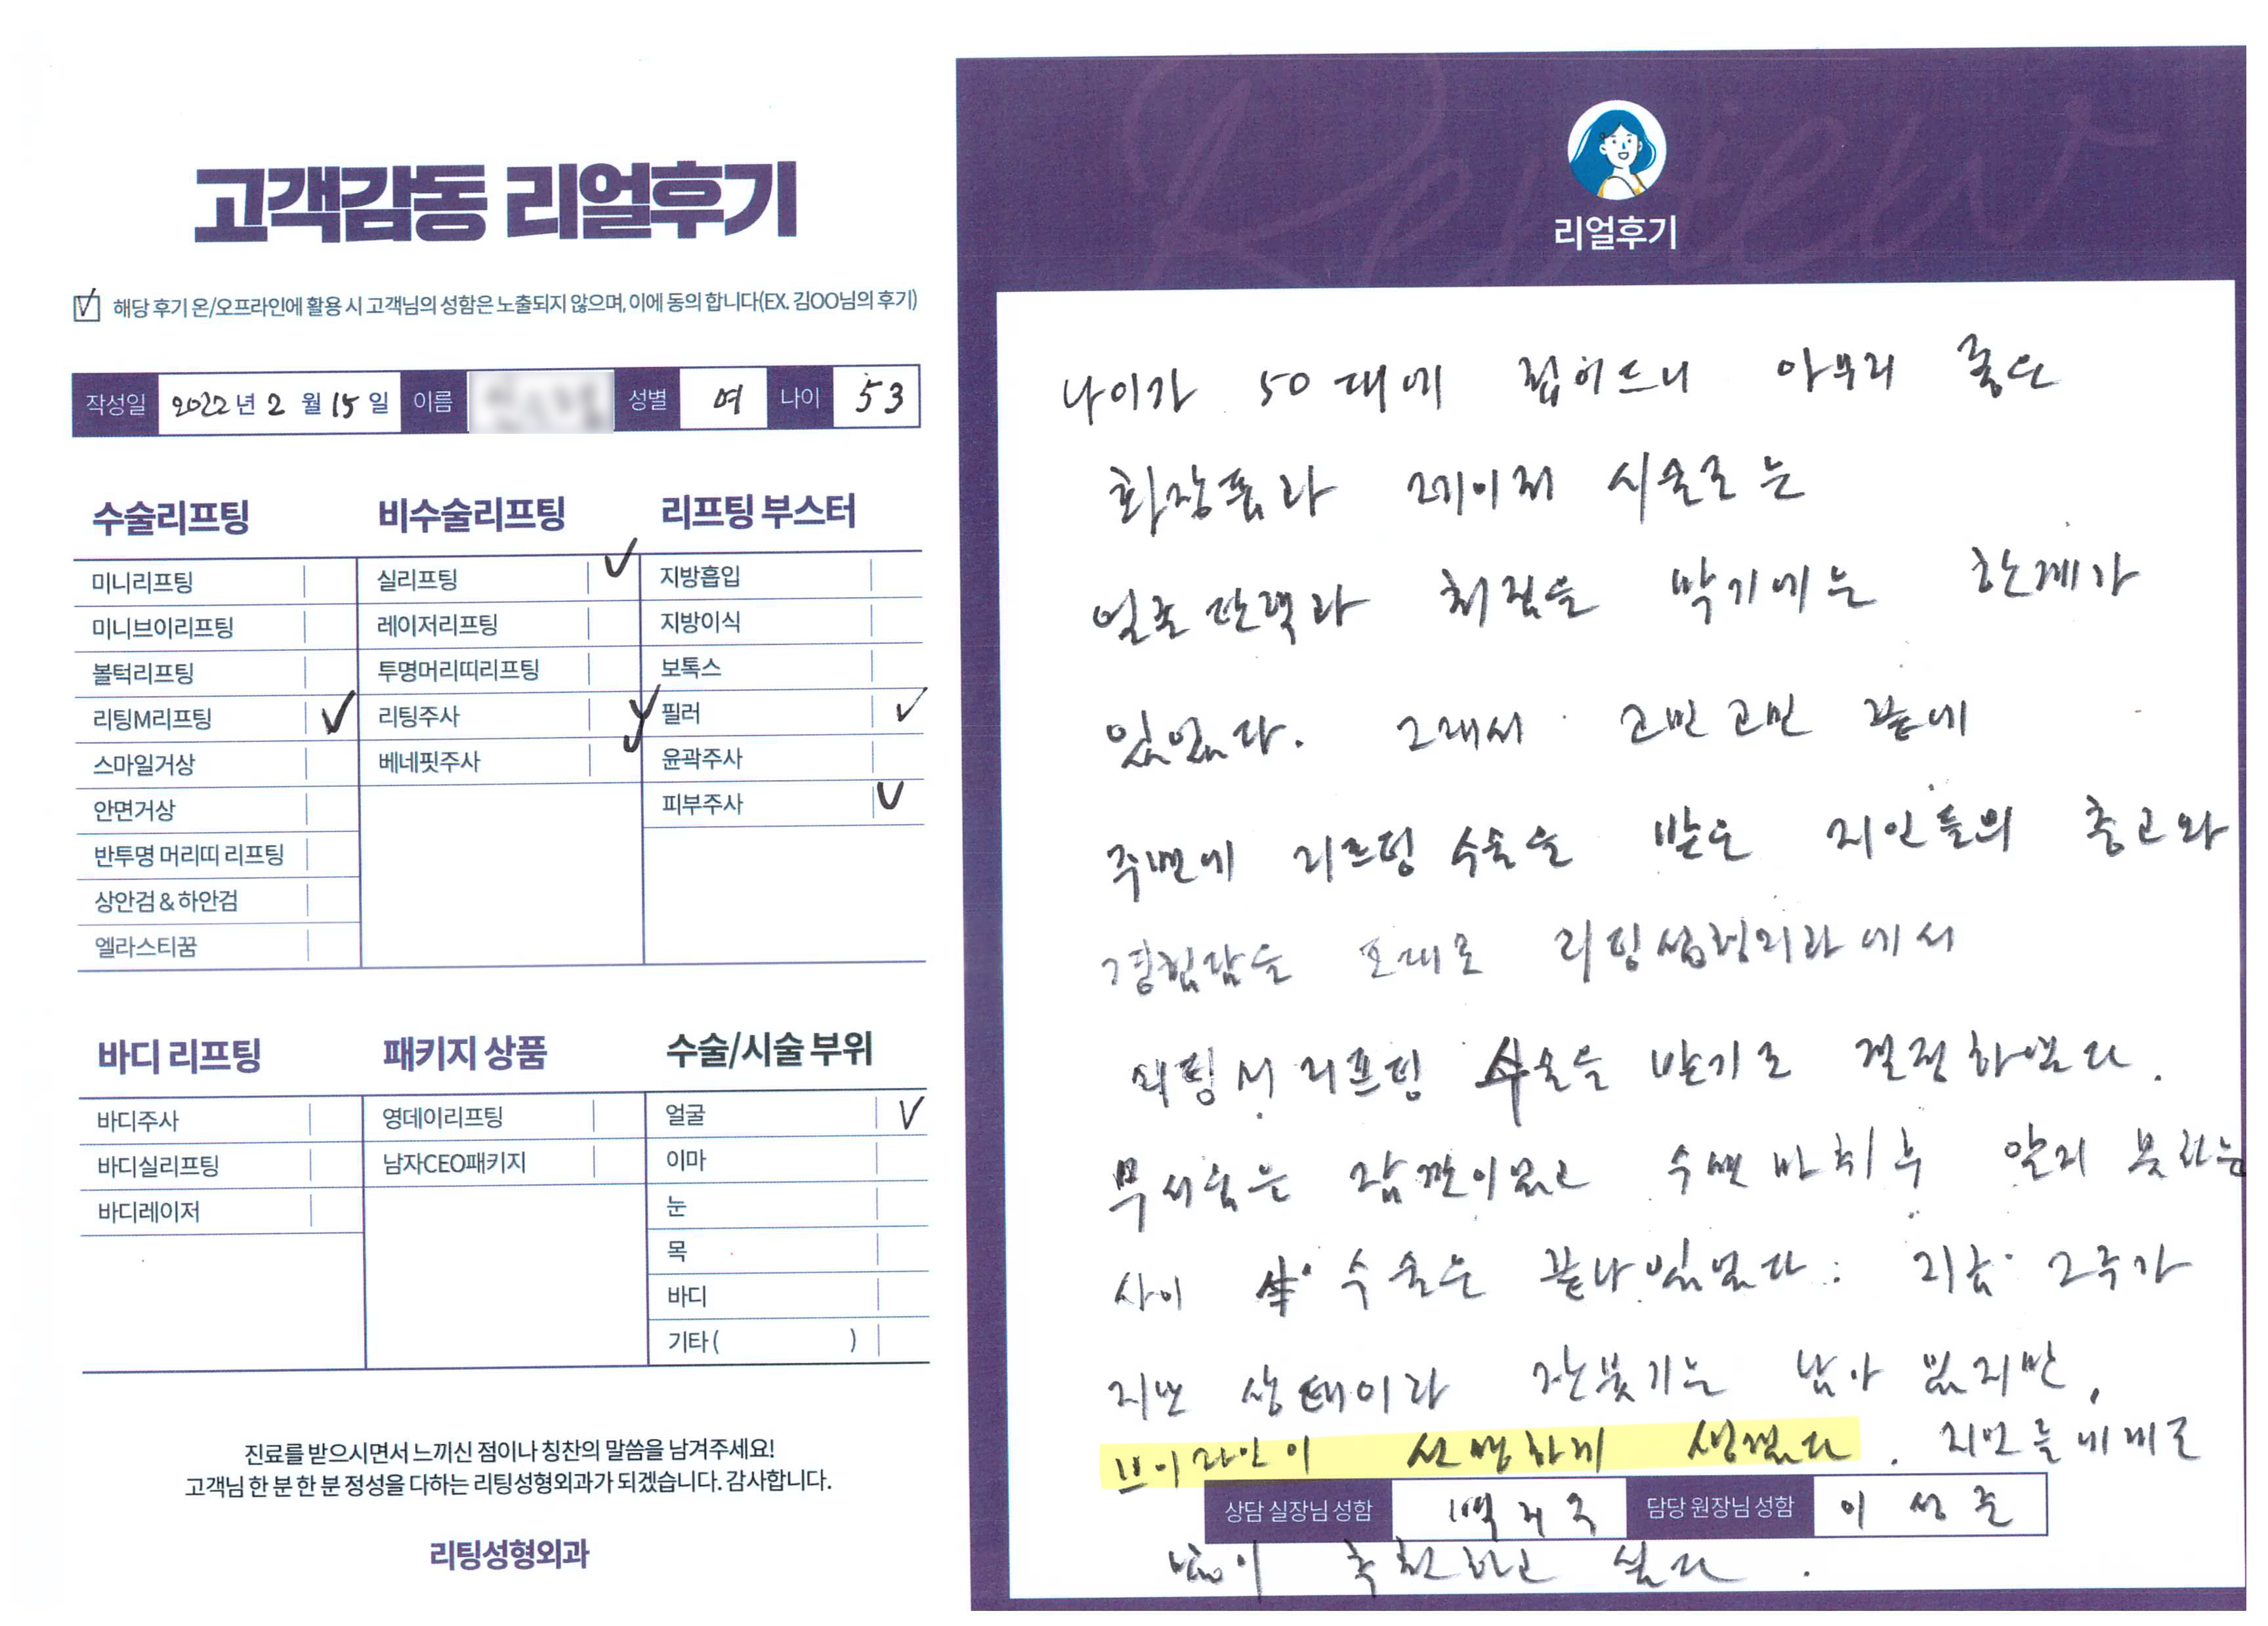 고객감동 리얼후기
해당 후기 온/오프라인에 활용 시 고객님의 성함은 노출되지 않으며, 이에 동의 합니다(EX. 김OO님의 후기)
작성일 2022년 2월 15일 이름 성별 여 나이 53
수술리프팅
미니리프팅
미니브이리프팅
볼턱리프팅
리팅M리프팅
스마일거상
안면거상
반투명 머리띠 리프팅
상안검 & 하안검
엘라스티꿈
비수술리프팅
실리프팅
레이저리프팅
투명머리띠리프팅
리팅주사
베네핏주사
리프팅 부스터
지방흡입
지방이식
보톡스
필러
윤곽주사
피부주사
바디 리프팅
바디주사
바디실리프팅
바디레이저
패키지 상품
영데이리프팅
남자CEO패키지
수술/시술 부위
얼굴
이마
눈
목
바디
기타 ( )
진료를 받으시면서 느끼신 점이나 칭찬의 말씀을 남겨주세요!
고객님 한 분 한 분 정성을 다하는 리팅성형외과가 되겠습니다. 감사합니다.
리팅성형외과
Review
리얼후기
나이가 50대에 접어드니 아무리 좋은
화장품과 레이저 시술로는
얼굴 탄력과 처짐을 막기에는 한계가
있었다. 그래서 고민고민 끝에
주변에 리프팅 수술을 받은 지인들의 충고와
경험담을 토대로 리팅성형외과에서
리프팅 수술을 받기로 결정하였다.
무서움은 잠깐이었고 수면마취후 알지 못하는
사이 수술은 끝나있었다. 지금 2주가
지난 상태이라 잔붓기는 남아 있지만,
브이라인이 선명하게 생겼다. 지인들에게도
상담 실장님 성함 담당 원장님 성함 이성준
많이 추천하고 싶다.